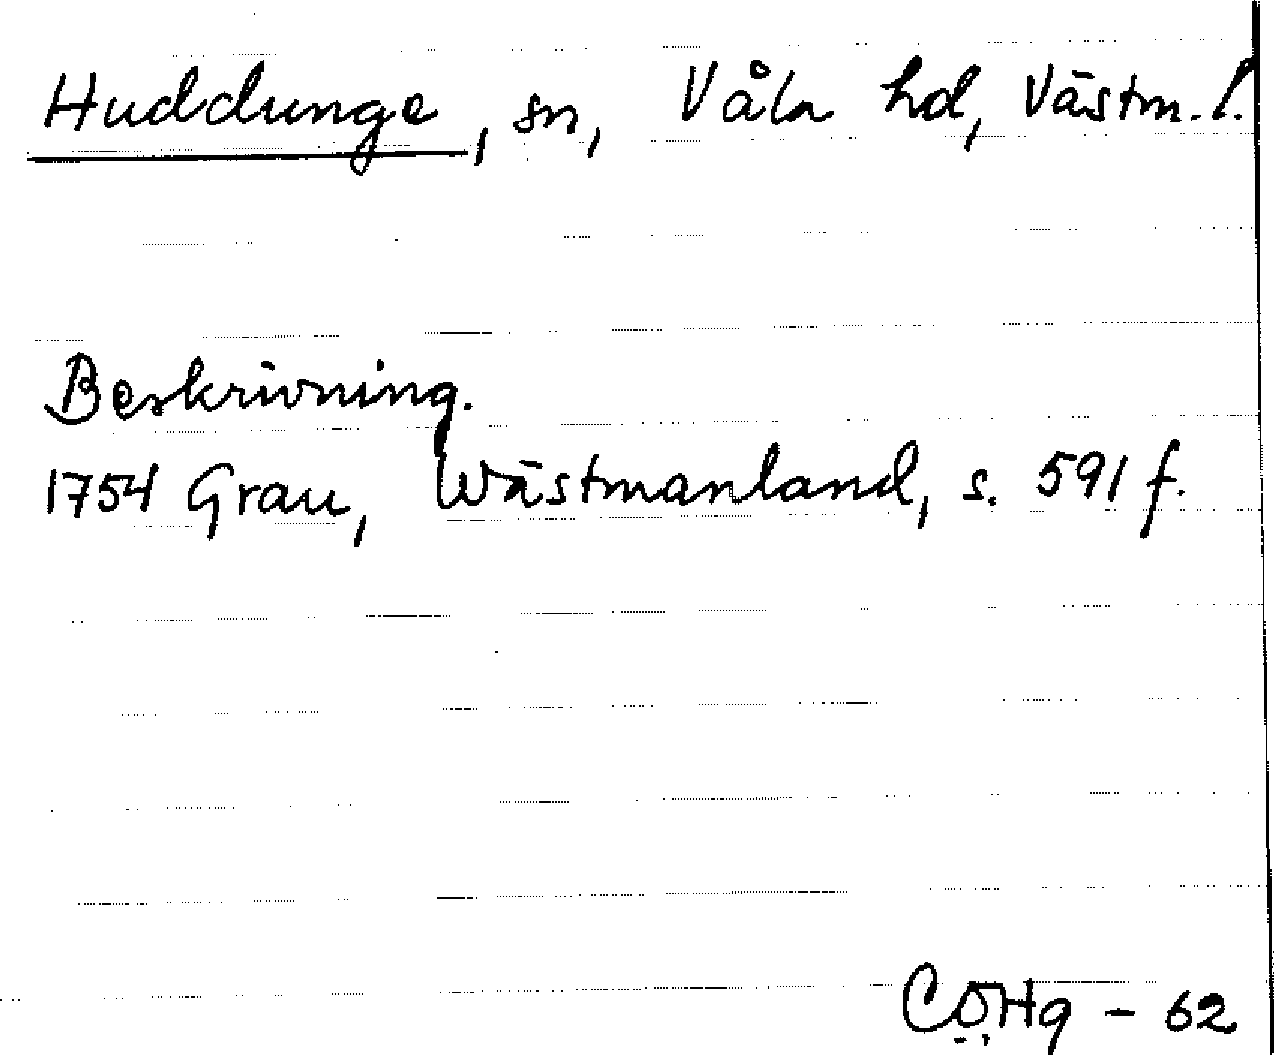 Huddunge, sn, Våla hd, Västm. l.
Beskrivning.
1754 Grau, Wästmanland, s. 591 f.
CÖHg - 62